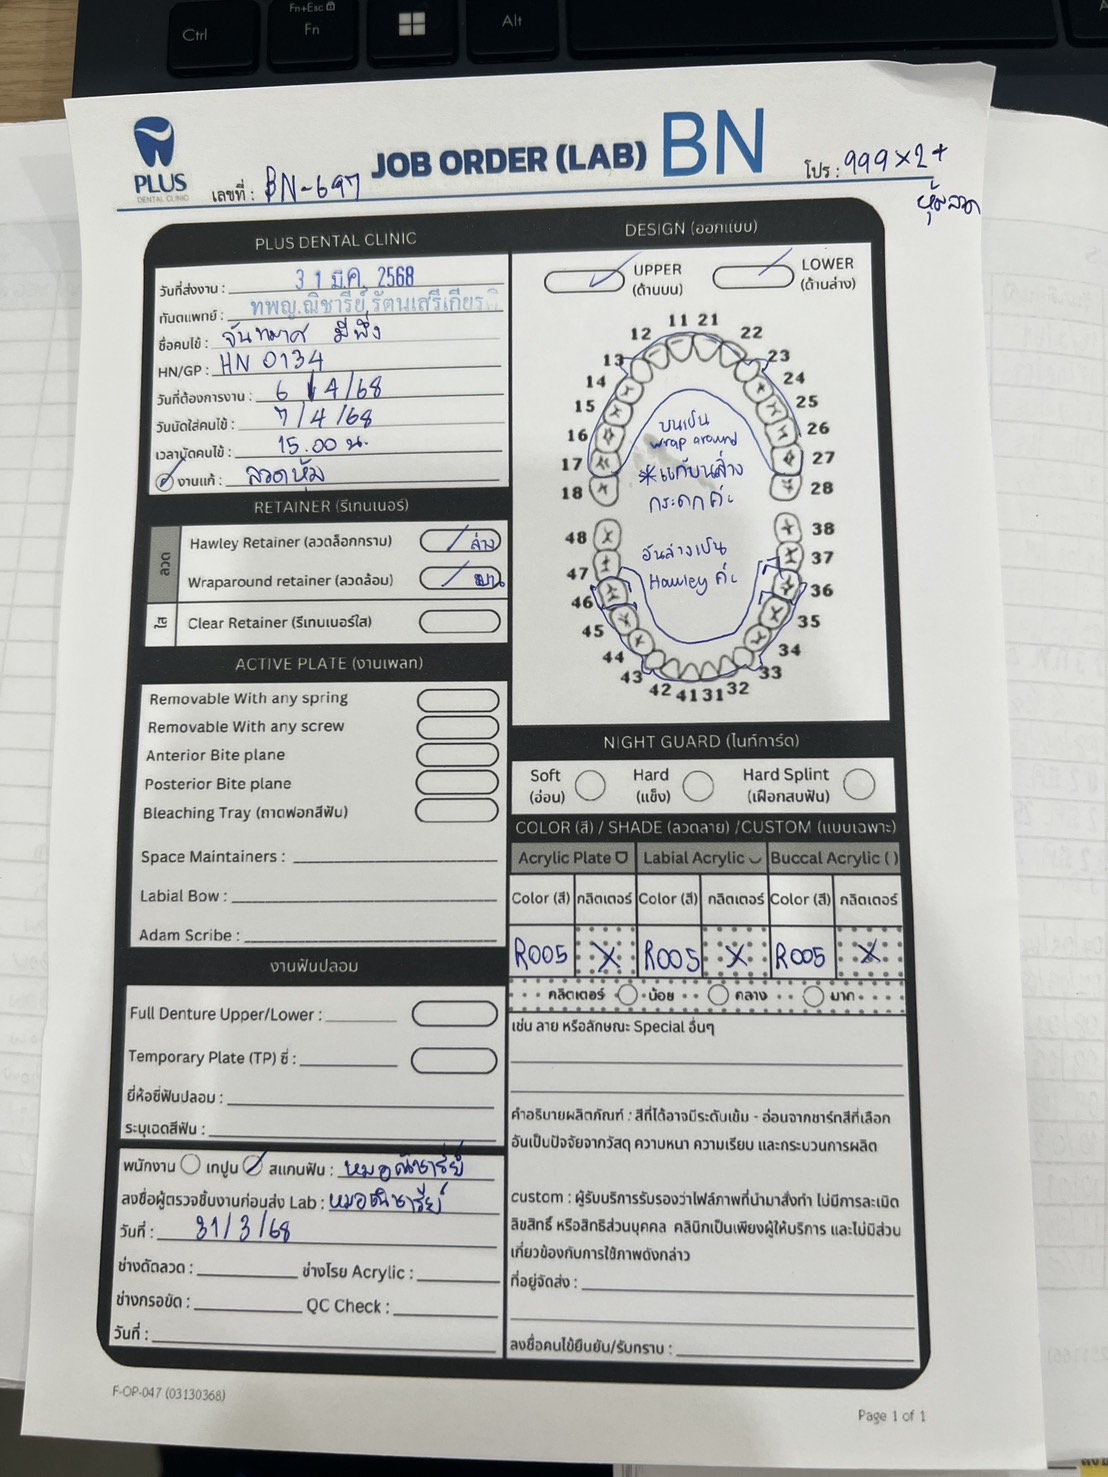 Ctrl
Fn+Esc
Fn
Alt
PLUS
DENTAL CLINIC
เลขที่ : BN-697
JOB ORDER (LAB) BN
โปร : 999x2+
หุ้มลวด
PLUS DENTAL CLINIC
วันที่ส่งงาน : 31 มี.ค. 2568
ทันตแพทย์ : ทพญ.ณิชารีย์ รัตนเสรีเกียรติ
ชื่อคนไข้ : จันทมาศ มีพึ่ง
HN/GP : HN 0134
วันที่ต้องการงาน : 6/4/68
วันนัดใส่คนไข้ : 7/4/68
เวลานัดคนไข้ : 15.00 น.
งานแก้ : ลวดหุ้ม
RETAINER (รีเทนเนอร์)
ลวด
Hawley Retainer (ลวดล็อกกราม) ล่าง
Wraparound retainer (ลวดล้อม) บน
ใส
Clear Retainer (รีเทนเนอร์ใส)
ACTIVE PLATE (งานเพลท)
Removable With any spring
Removable With any screw
Anterior Bite plane
Posterior Bite plane
Bleaching Tray (ถาดฟอกสีฟัน)
Space Maintainers :
Labial Bow :
Adam Scribe :
งานฟันปลอม
Full Denture Upper/Lower :
Temporary Plate (TP) ซี่ :
ยี่ห้อซี่ฟันปลอม :
ระบุเฉดสีฟัน :
พนักงาน เทปูน สแกนฟัน : หมอณิชารีย์
ลงชื่อผู้ตรวจชิ้นงานก่อนส่ง Lab : หมอณิชารีย์
วันที่ : 31/3/68
ช่างดัดลวด : ช่างโรย Acrylic :
ช่างกรอขัด : QC Check :
วันที่ :
DESIGN (ออกแบบ)
UPPER
(ด้านบน)
LOWER
(ด้านล่าง)
11 21
12 22
13 23
14 24
15 25
16 26
17 27
18 28
บนเป็น
wrap around
*แก้บนล่าง
กระดกค่ะ
48 38
47 37
46 36
45 35
44 34
43 33
42 41 31 32
อันล่างเป็น
Hawley ค่ะ
NIGHT GUARD (ไนท์การ์ด)
Soft
(อ่อน)
Hard
(แข็ง)
Hard Splint
(เฝือกสบฟัน)
COLOR (สี) / SHADE (ลวดลาย) /CUSTOM (แบบเฉพาะ)
Acrylic Plate Labial Acrylic Buccal Acrylic ( )
Color (สี) กลิตเตอร์ Color (สี) กลิตเตอร์ Color (สี) กลิตเตอร์
R005 X R005 X R005 X
กลิตเตอร์ น้อย กลาง มาก
เช่น ลาย หรือลักษณะ Special อื่นๆ
คำอธิบายผลิตภัณฑ์ : สีที่ได้อาจมีระดับเข้ม - อ่อนจากชาร์ทสีที่เลือก
อันเป็นปัจจัยจากวัสดุ ความหนา ความเรียบ และกระบวนการผลิต
custom : ผู้รับบริการรับรองว่าไฟล์ภาพที่นำมาสั่งทำ ไม่มีการละเมิด
ลิขสิทธิ์ หรือสิทธิส่วนบุคคล คลินิกเป็นเพียงผู้ให้บริการ และไม่มีส่วน
เกี่ยวข้องกับการใช้ภาพดังกล่าว
ที่อยู่จัดส่ง :
ลงชื่อคนไข้ยืนยัน/รับทราบ :
F-OP-047 (03130368)
Page 1 of 1